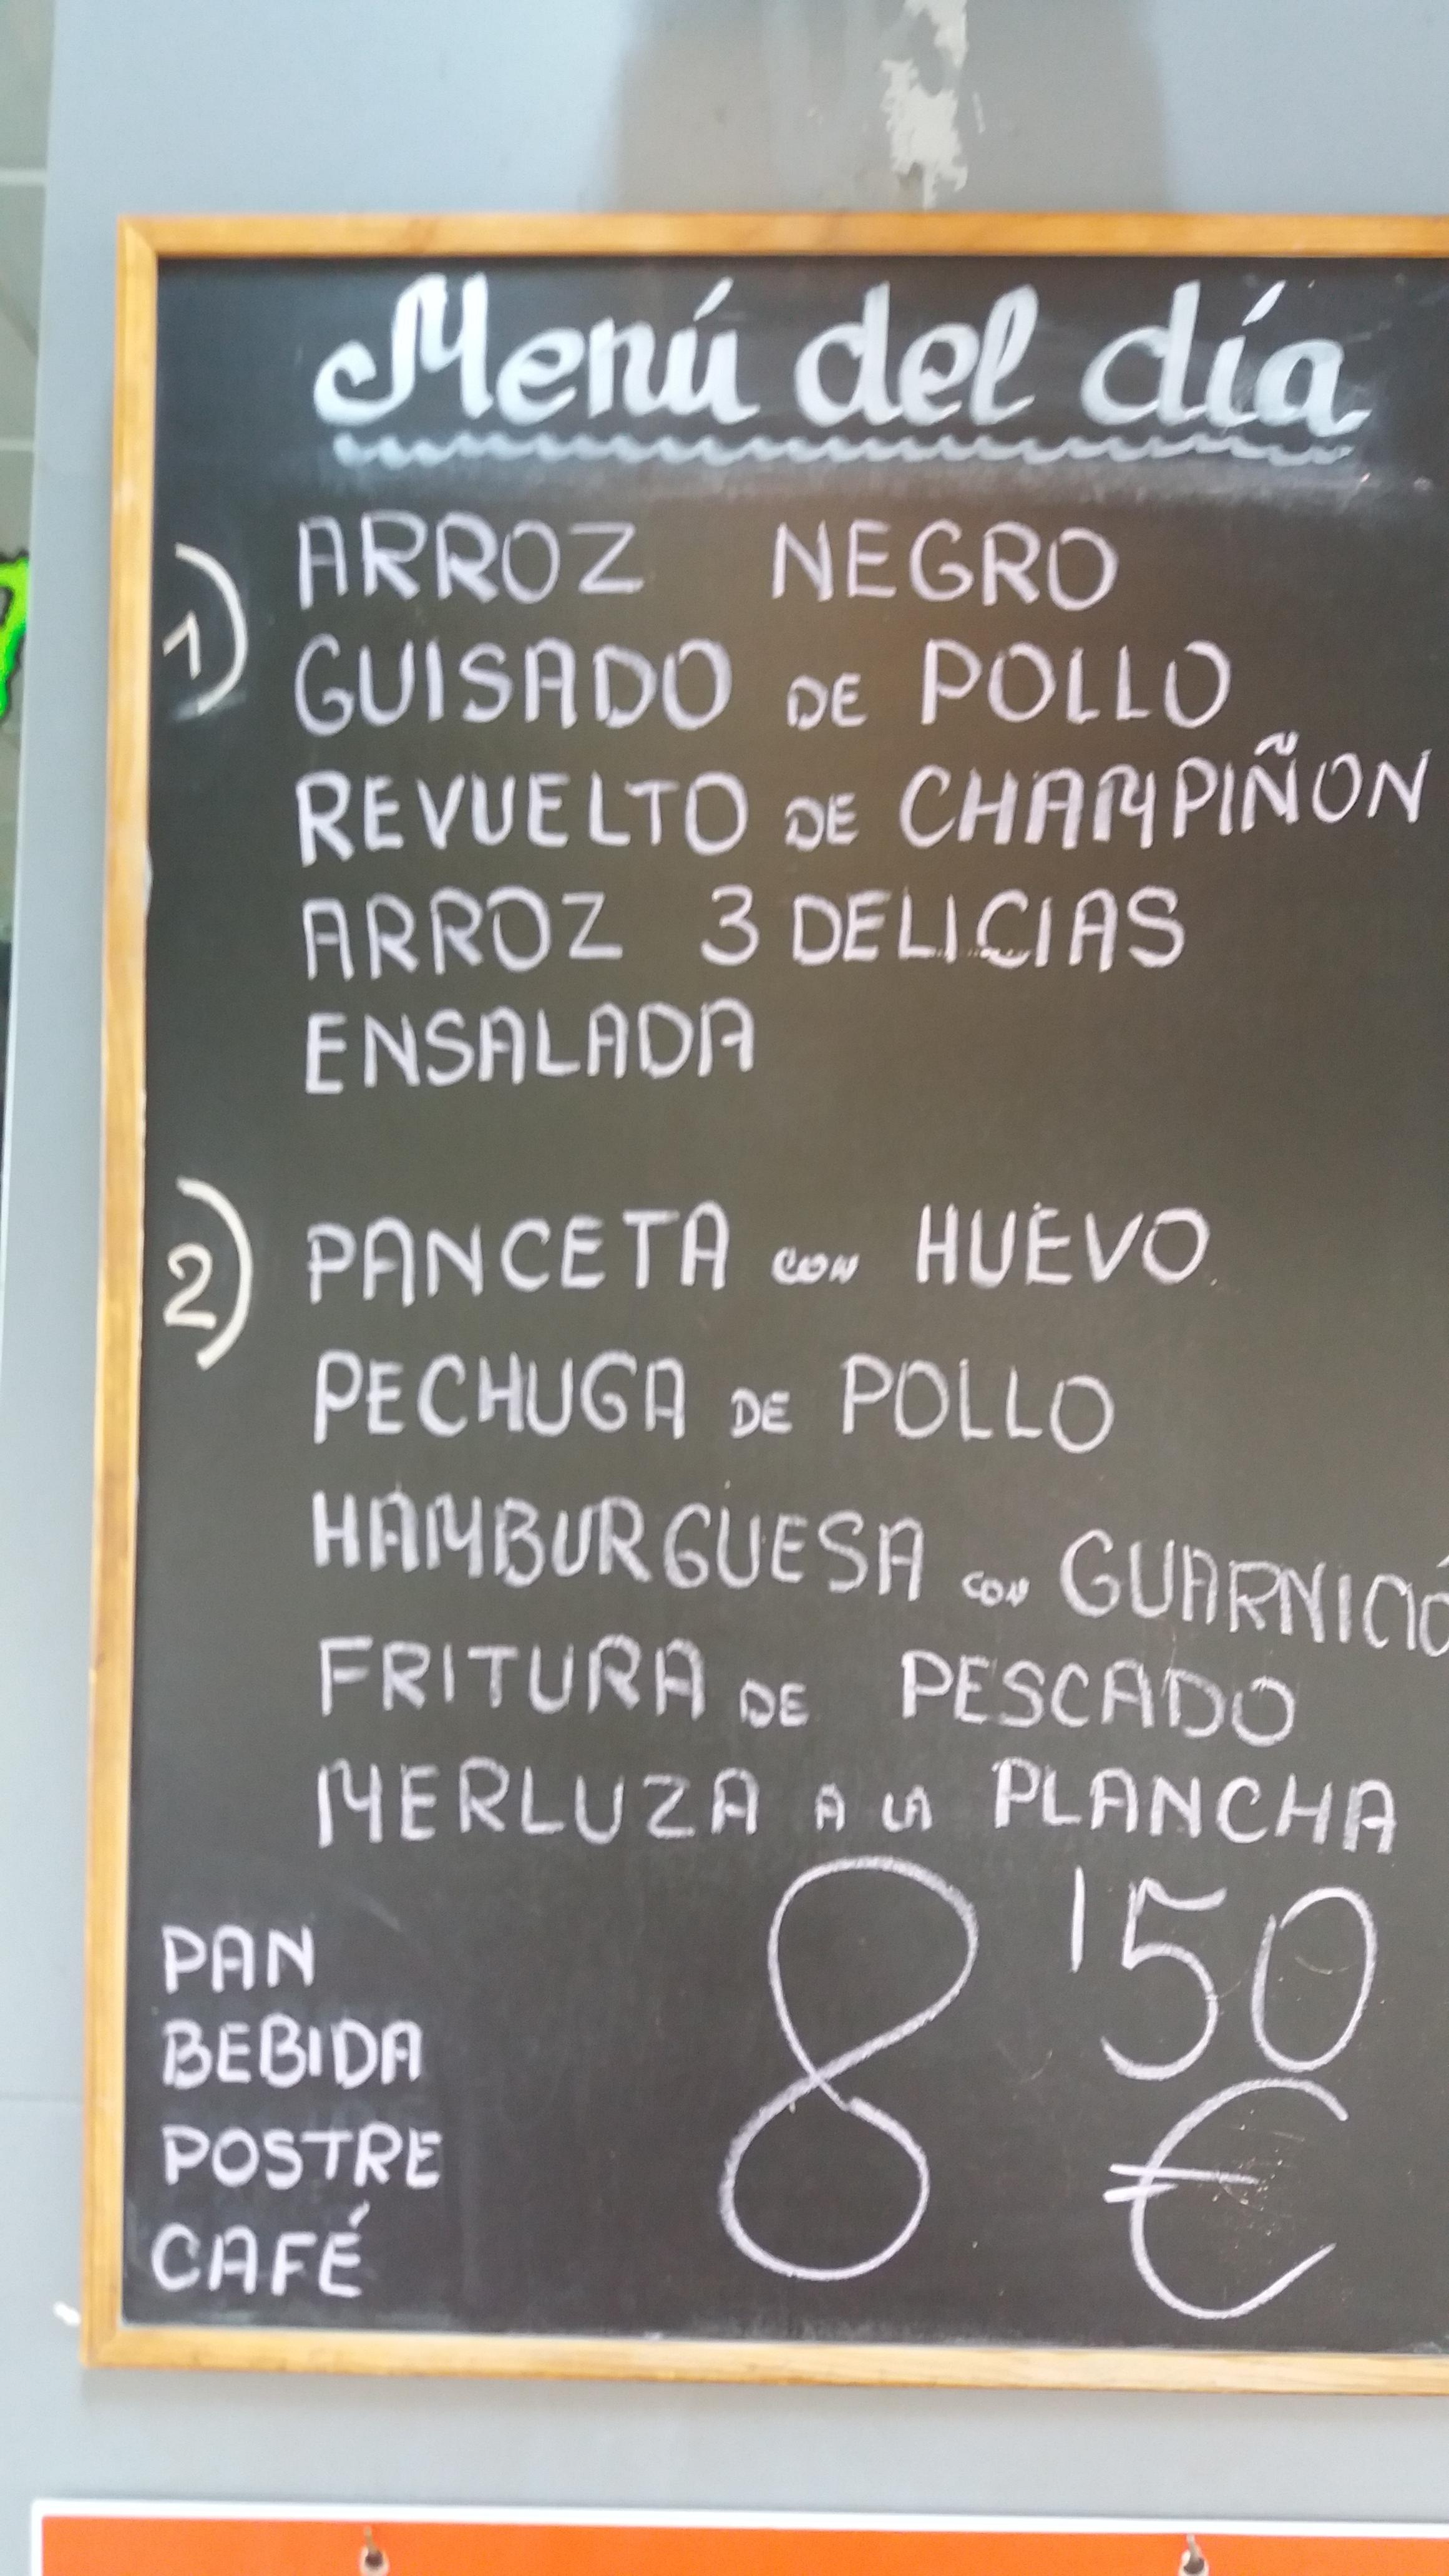 Menú del día
1) ARROZ NEGRO
GUISADO DE POLLO
REVUELTO DE CHAMPIÑON
ARROZ 3 DELICIAS
ENSALADA
2) PANCETA CON HUEVO
PECHUGA DE POLLO
HAMBURGUESA CON GUARNICIÓ
FRITURA DE PESCADO
MERLUZA A LA PLANCHA
PAN
BEBIDA
POSTRE
CAFÉ
8'50
€